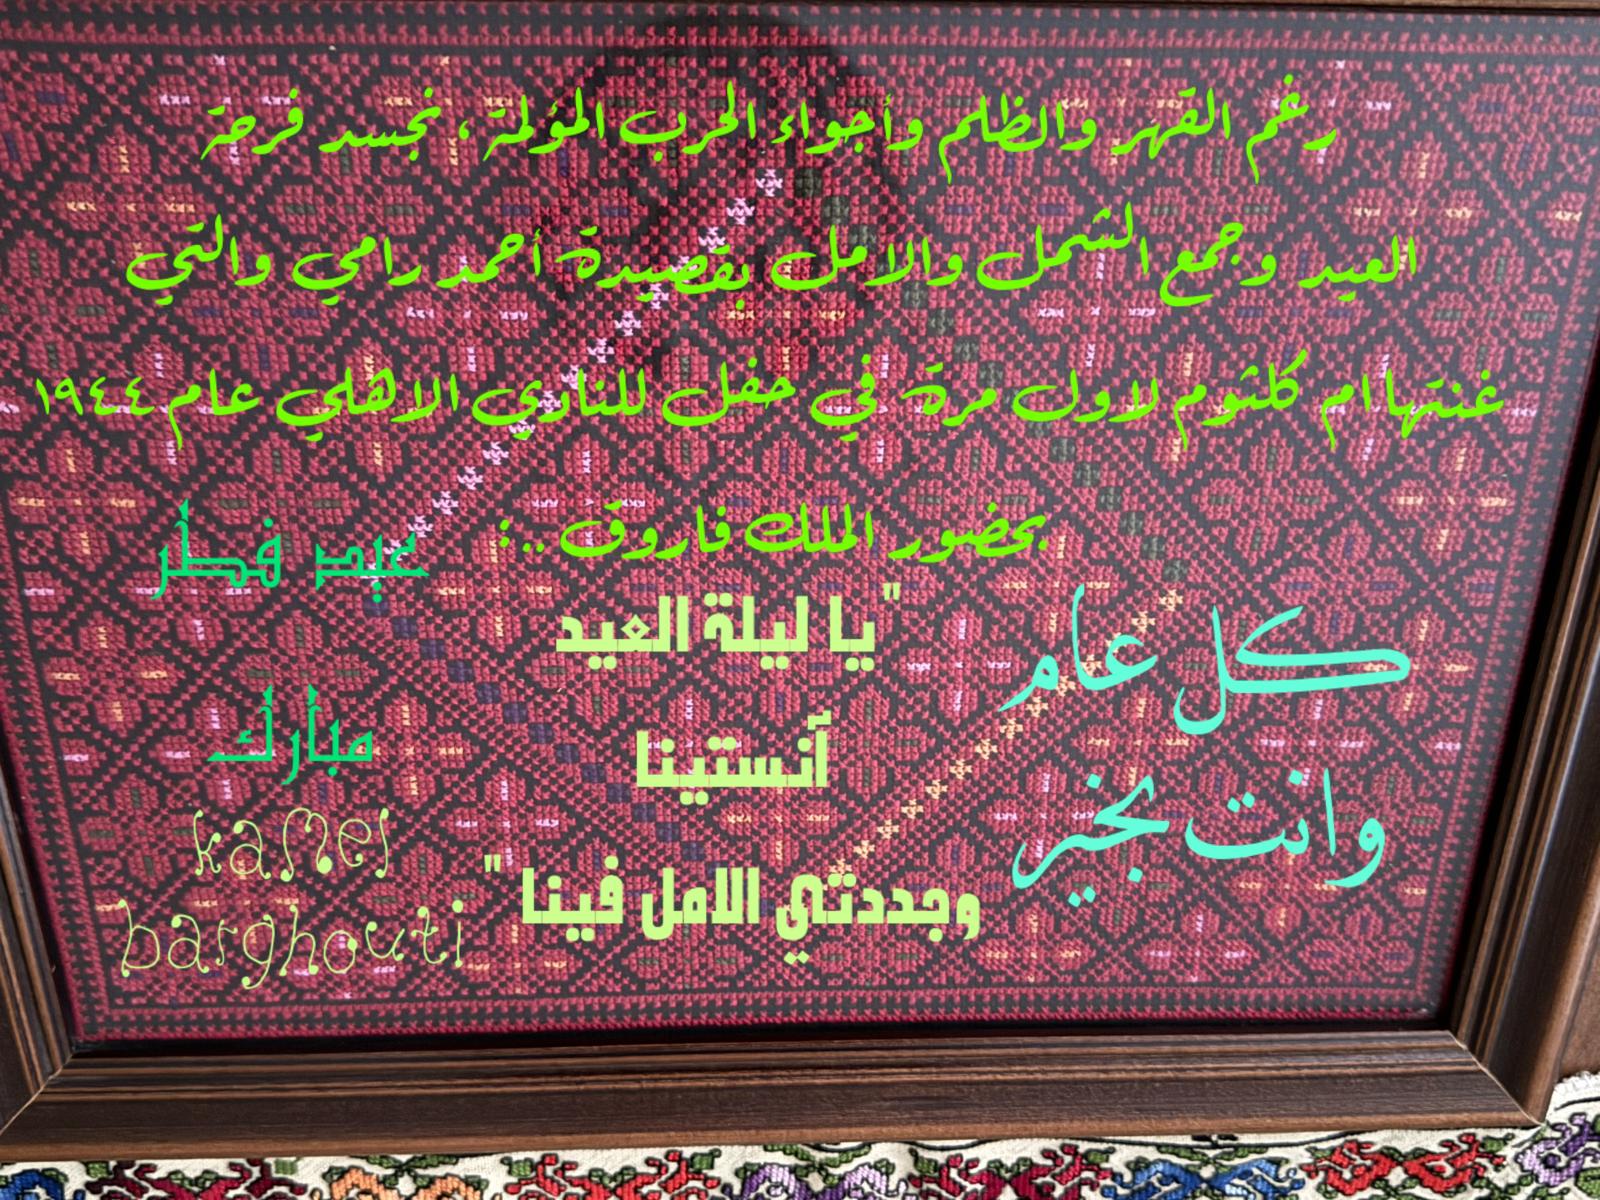 رغم القهر والظلم وأجواء الحرب المؤلمة ، نجسد فرحة
العيد وجمع الشمل والامل بقصيدة أحمد رامي والتي
غنتها ام كلثوم لاول مرة في حفل للنادي الاهلي عام ١٩٤٤
بحضور الملك فاروق ..:
"يا ليلة العيد
أنستينا
وجددتي الامل فينا"
كل عام
وانت بخير
عيد فطر
مبارك
kamel
barghouti